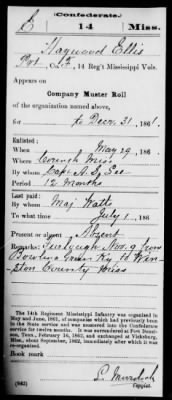 (Confederate.)
E 14 Miss.
Haywood Ellis
Pvt, Co. F, 14 Reg't Mississippi Vols.
Appears on
Company Muster Roll
of the organization named above,
for to Decr. 31, 1861.
Enlisted:
When May 29, 1861.
Where Corinth Miss
By whom Capt
Period 12 Months
Last paid:
By whom Maj Watts
To what time July 1, 186 .
Present or absent Absent
Remarks: Furlough Nov. 9 from
Bowling Green Ky to Win-
ston County Miss
The 14th Regiment Mississippi Infantry was organized in
May and June, 1861, of companies which had previously been
in the State service and was mustered into the Confederate
service for twelve months. It was surrendered at Fort Donel-
son, Tenn., February 16, 1862, and exchanged at Vicksburg,
Miss., about September, 1862, immediately after which it was
re-organized.
Book mark:
(642)
Copyist.